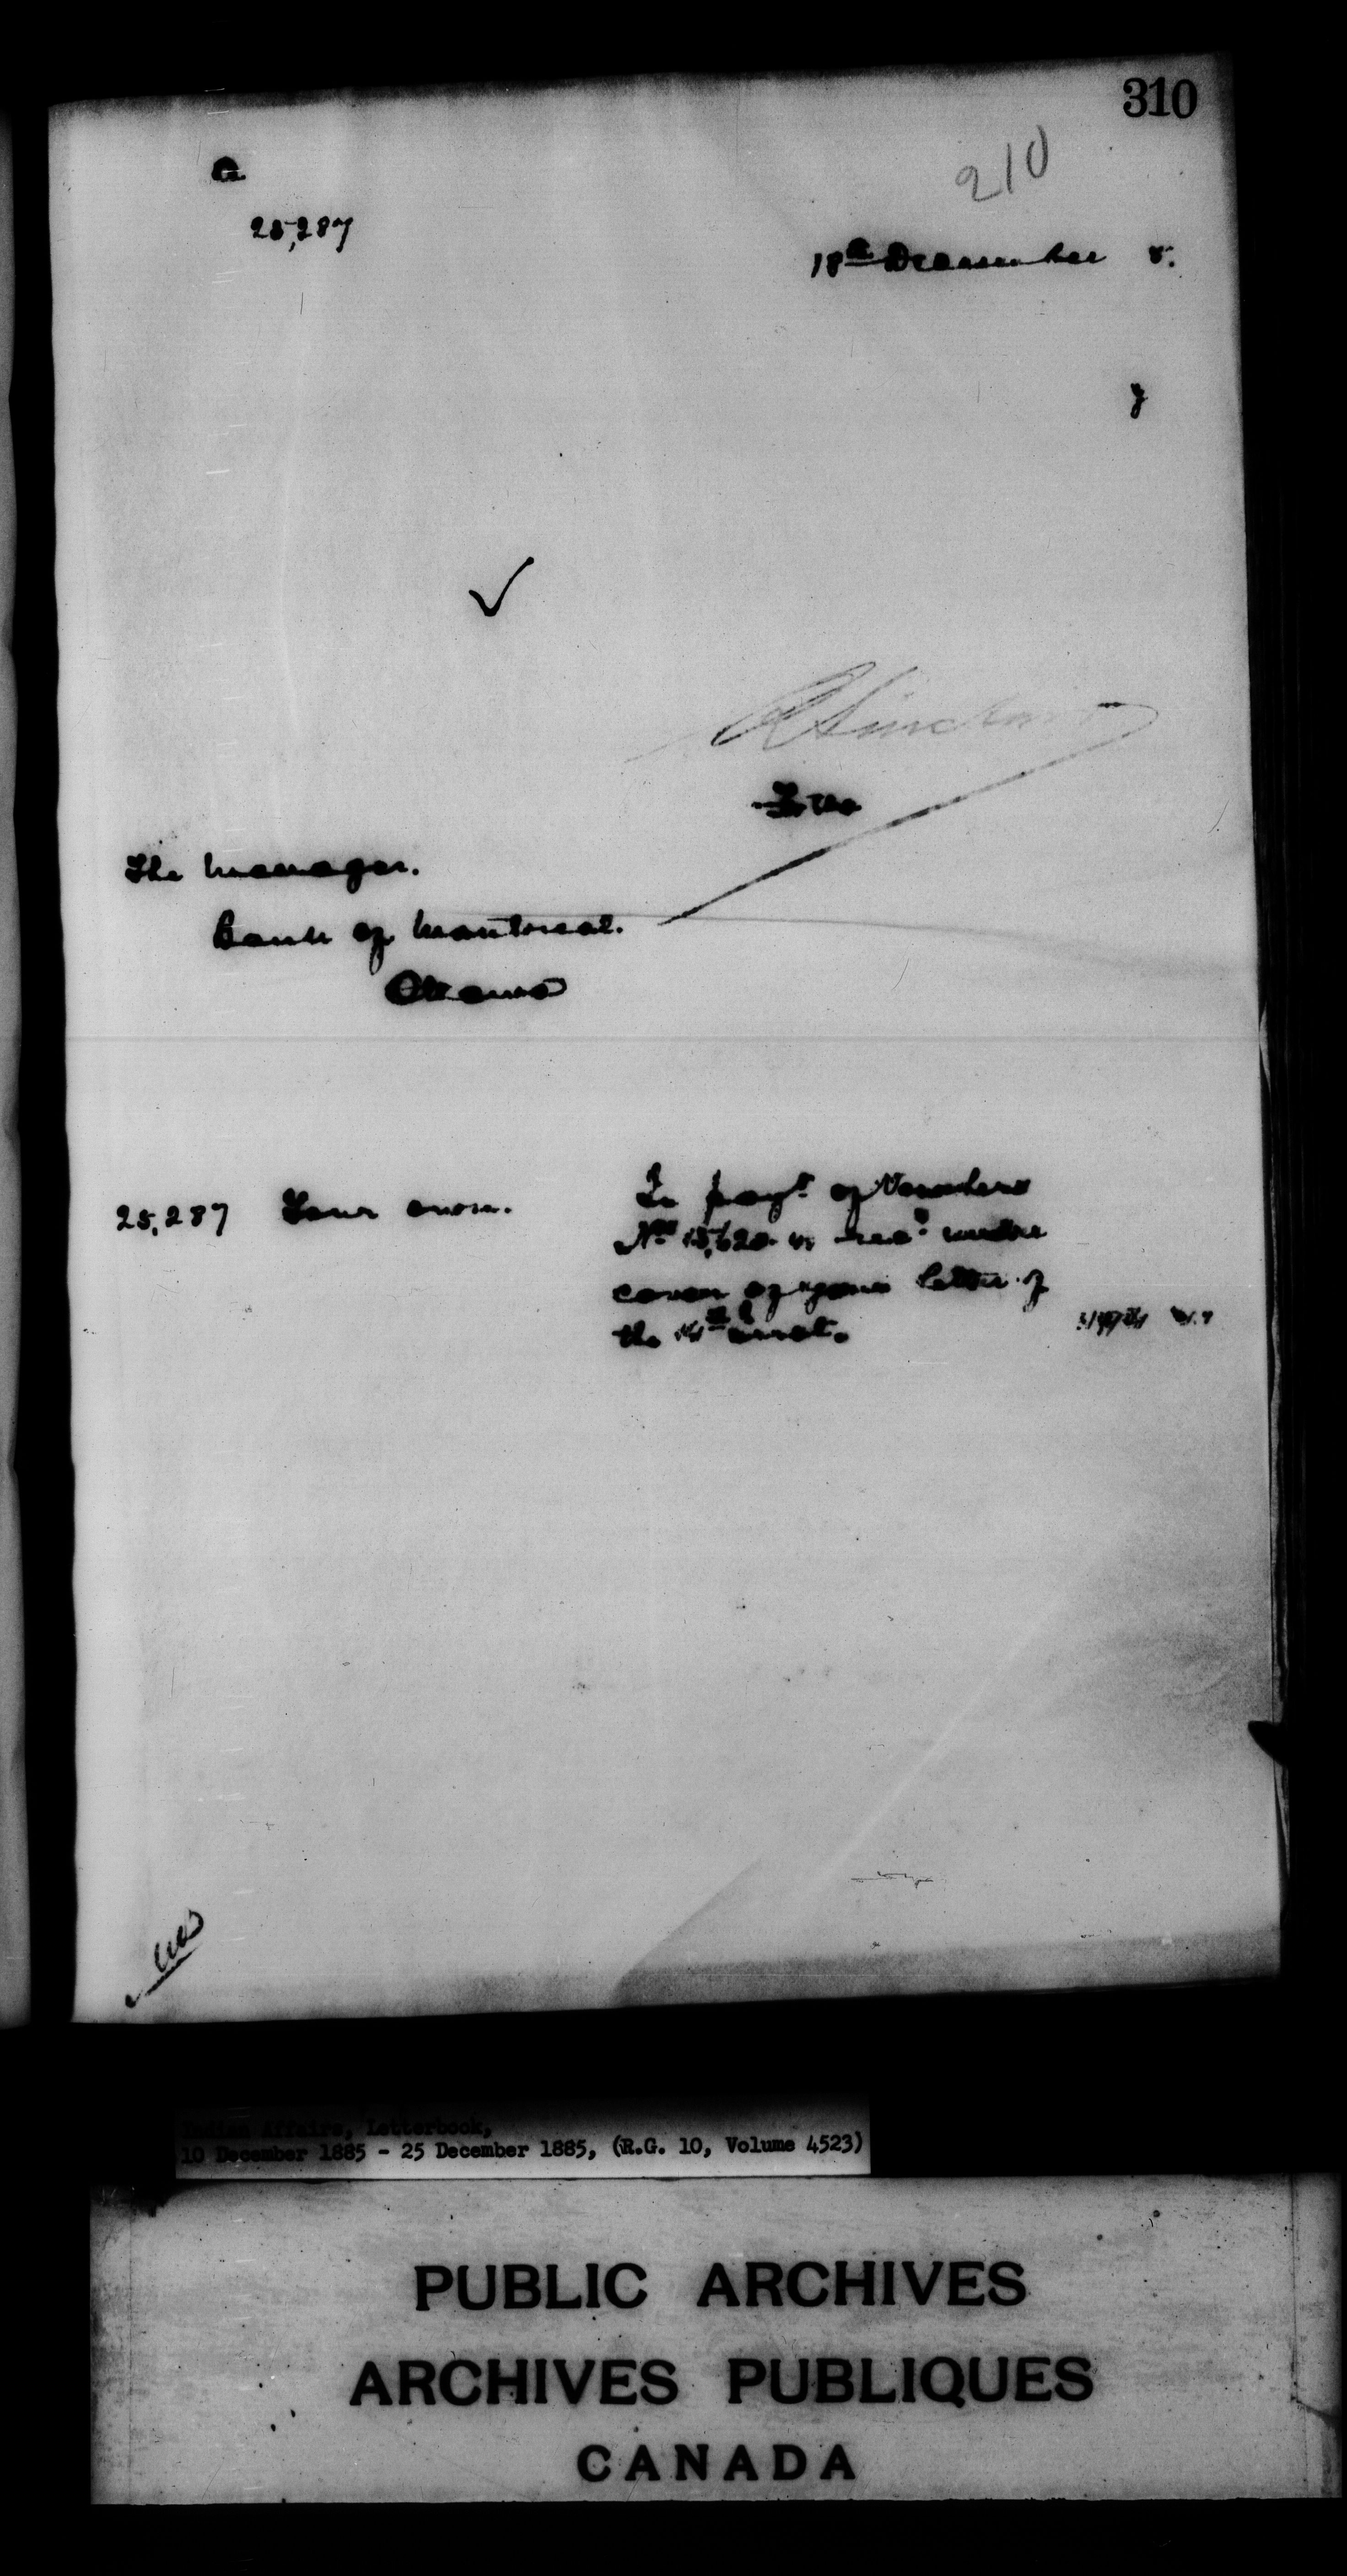 310
210
a
25,287
18th December 5.
y
R Sinclair
For the
The Manager.
Bank of Montreal.
Ottawa
25,287 Your own. In payt. of Vouchers
Nos 15,620. rec'd under
cover of your letter of
the 14th inst.
Indian Affairs, Letterbook,
10 December 1885 - 25 December 1885, (R.G. 10, Volume 4523)
PUBLIC ARCHIVES
ARCHIVES PUBLIQUES
CANADA